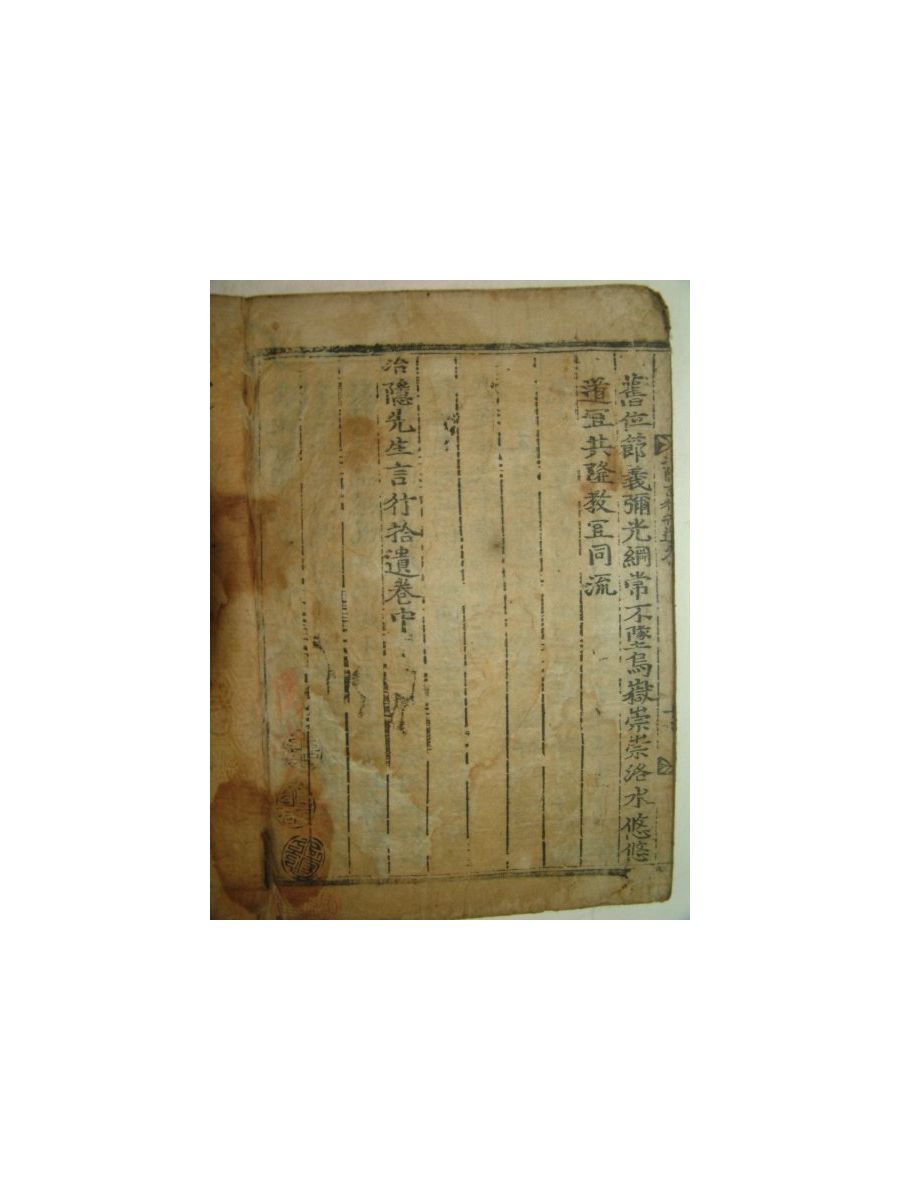 舊位節義彌光綱常不墜烏嶽崇崇洛水悠悠
道宜共隆敎宜同流
冶隱先生言行拾遺卷中